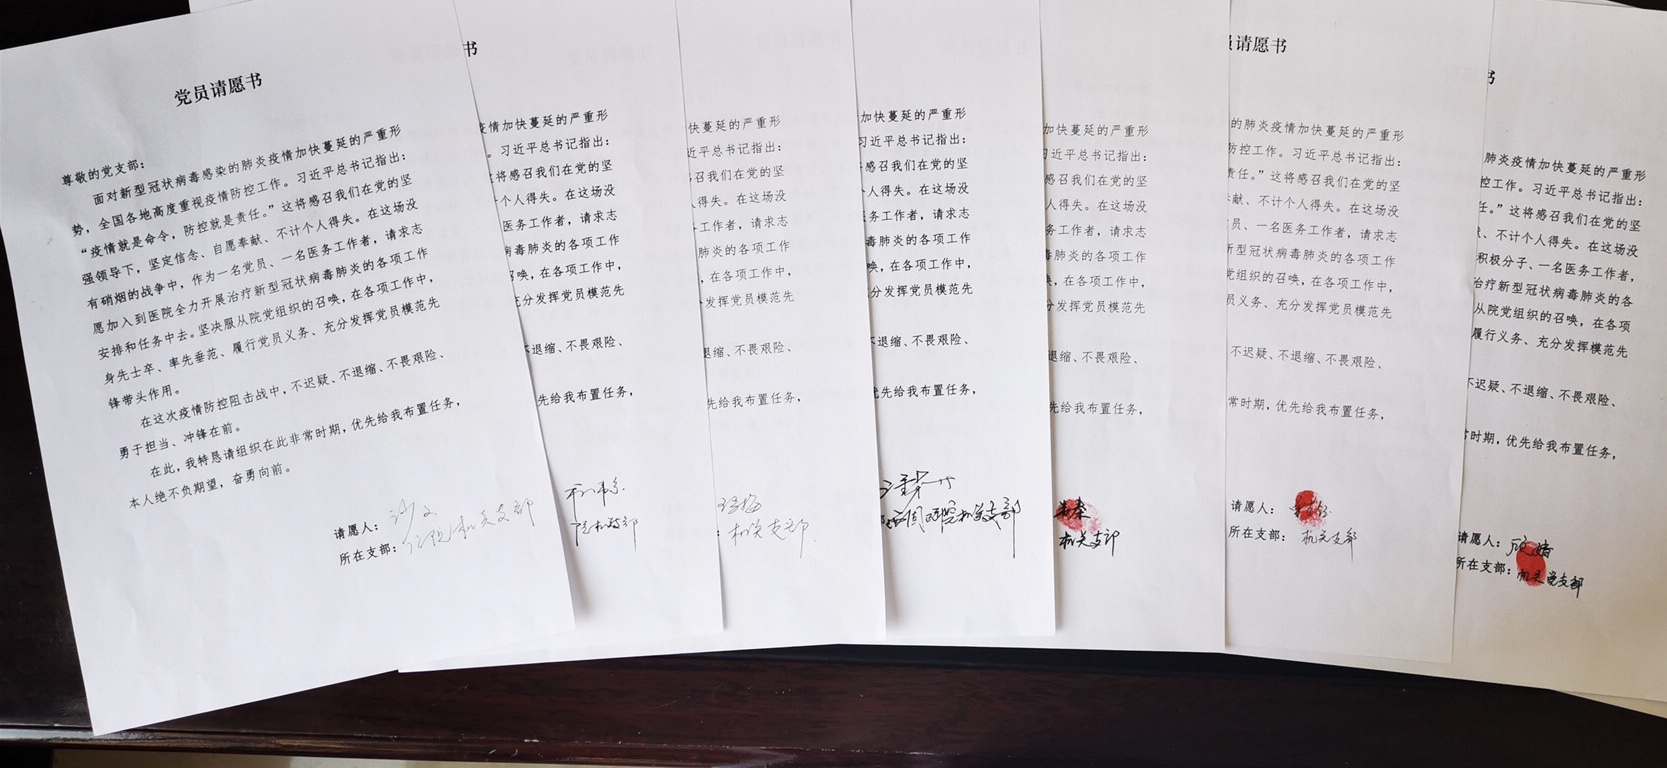 党员请愿书
尊敬的党支部：
面对新型冠状病毒感染的肺炎疫情加快蔓延的严重形
势，全国各地高度重视疫情防控工作。习近平总书记指出：
“疫情就是命令，防控就是责任。”这将感召我们在党的坚
强领导下，坚定信念、自愿奉献、不计个人得失。在这场没
有硝烟的战争中，作为一名党员、一名医务工作者，请求志
愿加入到医院全力开展治疗新型冠状病毒肺炎的各项工作
安排和任务中去。坚决服从院党组织的召唤，在各项工作中，
身先士卒、率先垂范、履行党员义务、充分发挥党员模范先
锋带头作用。
在这次疫情防控阻击战中，不迟疑、不退缩、不畏艰险、
勇于担当、冲锋在前。
在此，我特恳请组织在此非常时期，优先给我布置任务，
本人绝不负期望，奋勇向前。
请愿人：
所在支部： 机关支部
书
疫情加快蔓延的严重形
。习近平总书记指出：
这将感召我们在党的坚
个人得失。在这场没
医务工作者，请求志
病毒肺炎的各项工作
召唤，在各项工作中，
充分发挥党员模范先
不退缩、不畏艰险、
先给我布置任务，
快蔓延的严重形
近平总书记指出：
召我们在党的坚
人得失。在这场没
工作者，请求志
肺炎的各项工作
，在各项工作中，
发挥党员模范先
退缩、不畏艰险、
先给我布置任务，
机关支部
加快蔓延的严重形
习近平总书记指出：
感召我们在党的坚
个人得失。在这场没
务工作者，请求志
毒肺炎的各项工作
唤，在各项工作中，
充分发挥党员模范先
不退缩、不畏艰险、
优先给我布置任务，
机关支部
加快蔓延的严重形
习近平总书记指出：
感召我们在党的坚
个人得失。在这场没
务工作者，请求志
毒肺炎的各项工作
唤，在各项工作中，
充分发挥党员模范先
不退缩、不畏艰险、
先给我布置任务，
机关支部
员请愿书
的肺炎疫情加快蔓延的严重形
防控工作。习近平总书记指出：
责任。”这将感召我们在党的坚
献、不计个人得失。在这场没
员、一名医务工作者，请求志
新型冠状病毒肺炎的各项工作
党组织的召唤，在各项工作中，
员义务、充分发挥党员模范先
不迟疑、不退缩、不畏艰险、
常时期，优先给我布置任务，
请愿人：
所在支部： 机关支部
书
肺炎疫情加快蔓延的严重形
控工作。习近平总书记指出：
任。”这将感召我们在党的坚
、不计个人得失。在这场没
积极分子、一名医务工作者，
治疗新型冠状病毒肺炎的各
从院党组织的召唤，在各项
履行义务、充分发挥模范先
不迟疑、不退缩、不畏艰险、
常时期，优先给我布置任务，
请愿人：
所在支部： 机关党支部